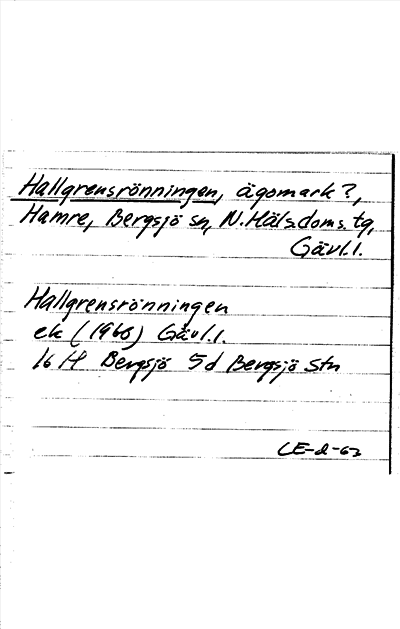 Hallgrensrönningen, ägomark?,
Hamre, Bergsjö sn, N.Häls.doms.tg,
Gävl.l.
Hallgrensrönningen
ek (1966) Gävl.l.
16 H Bergsjö 5d Bergsjö stn